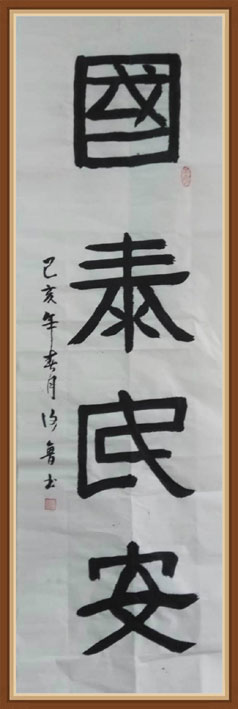 國泰民安
己亥年春月
魯书